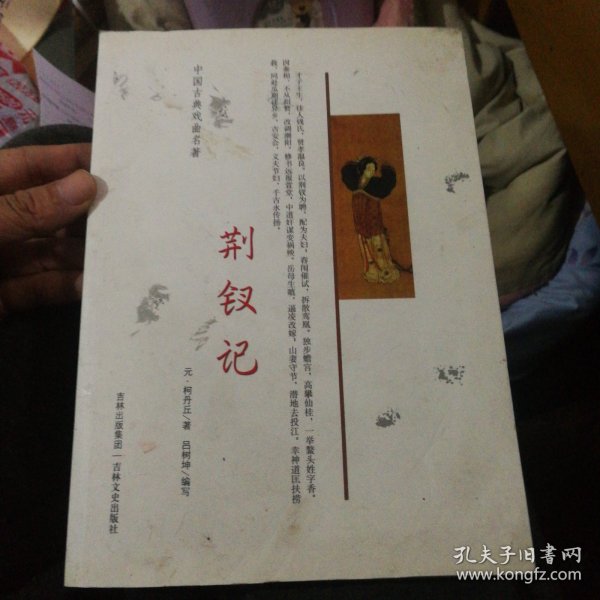 才子王生，佳人钱氏，贤孝温良。以荆钗为聘，配为夫妇，春闱催试，拆散鸾凰。独步蟾宫，高攀仙桂，一举鳌头姓字香。
因参相，不从招赘，改调潮阳。修书远报萱堂，中道奸谋变祸殃。岳母生嗔，逼凌改嫁，山妻守节，潜地去投江。幸神道匡扶捞
救，同赴瓜期往异乡。吉安会，义夫节妇，千古永传扬。
中国古典戏曲名著
荆钗记
元·柯丹丘/著 吕树坤/编写
吉林出版集团—吉林文史出版社
孔夫子旧书网
www.kongfz.com